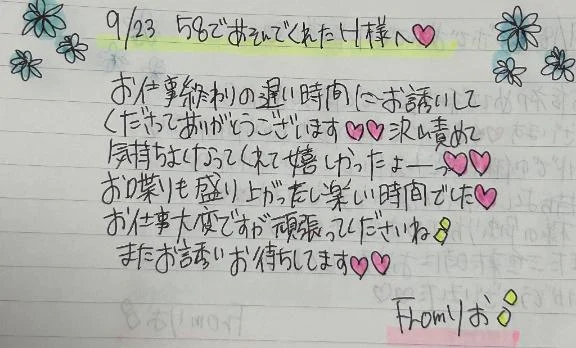 9/23 58であそんでくれたH様へ♡
お仕事終わりの遅い時間にお誘いして
くださってありがとうございます♡♡沢山責めて
気持ちよくなってくれて嬉しかったよーっ♡♡
お喋りも盛り上がったし楽しい時間でした♡
お仕事大変ですが頑張ってくださいね
またお誘いお待ちしてます♡♡
Fromりお